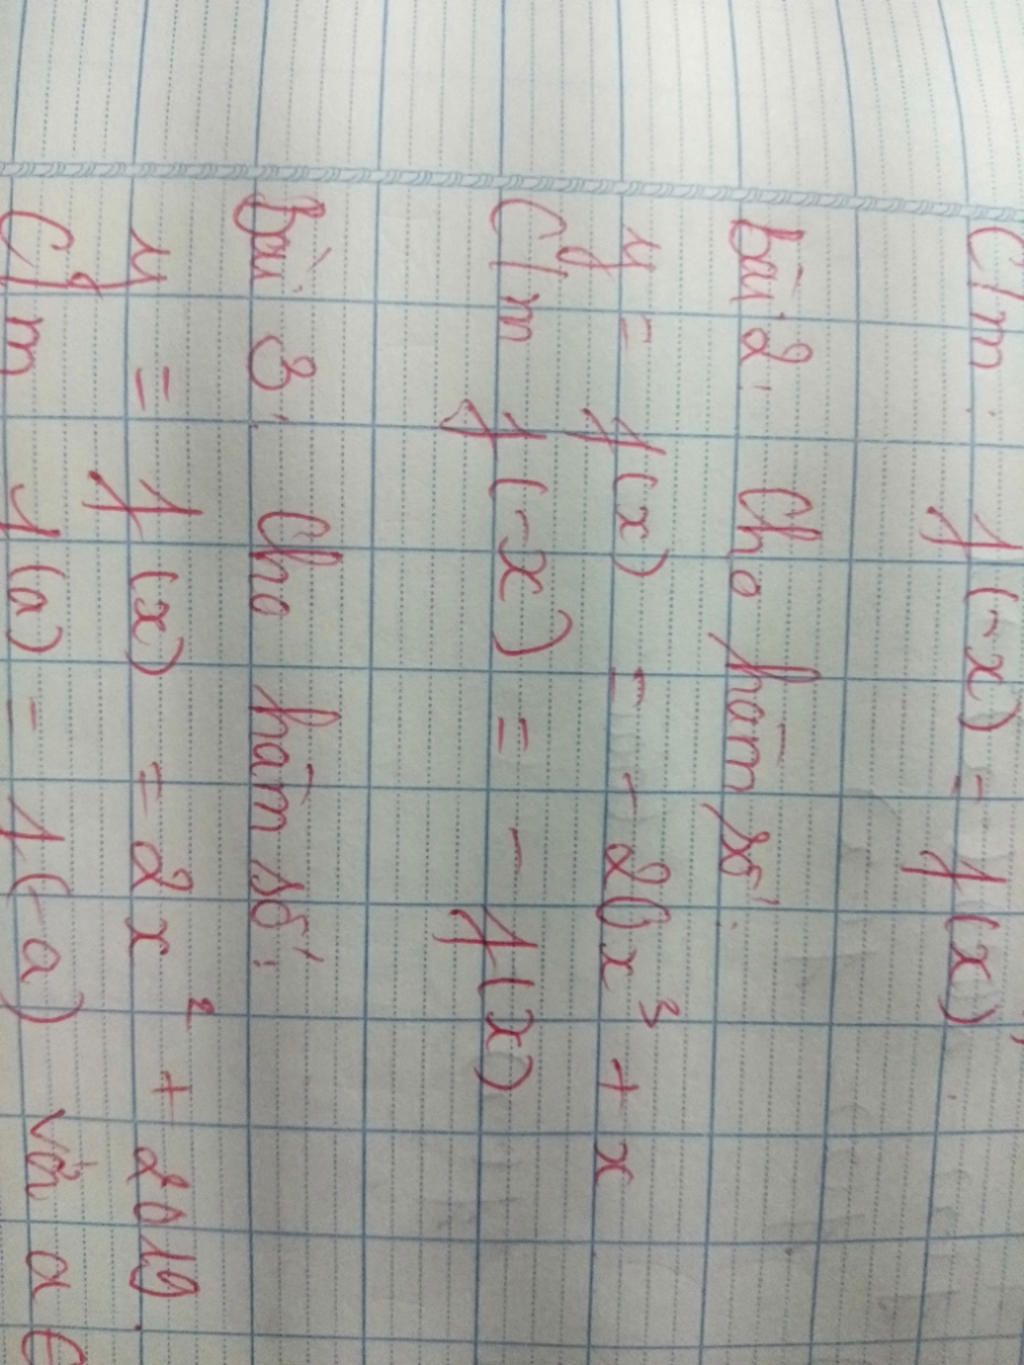 C/m: f(-x) = f(x),
Bài 2: Cho hàm số:
y = f(x) = -20x³ + x
C/m f(-x) = - f(x)
Bài 3: Cho hàm số:
y = f(x) = 2x² + 2019.
C/m f(a) = f(-a) với a ∈